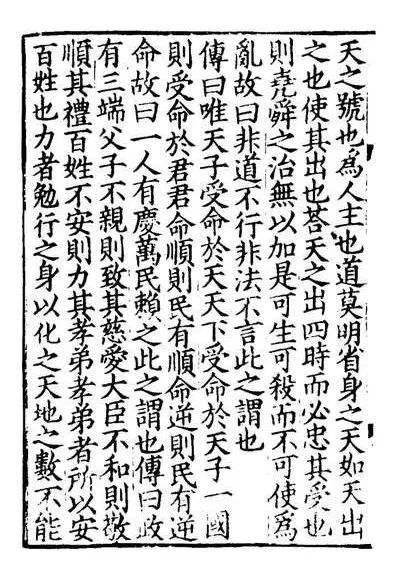 天之號也為人主也道莫明省身之天如天出
之也使其出也荅天之出四時而必忠其受也
則堯舜之治無以加是可生可殺而不可使為
亂故曰非道不行非法不言此之謂也
傳曰唯天子受命於天天下受命於天子一國
則受命於君君命順則民有順命逆則民有逆
命故曰一人有慶萬民賴之此之謂也傳曰政
有三端父子不親則致其慈愛大臣不和則敬
順其禮百姓不安則力其孝弟孝弟者所以安
百姓也力者勉行之身以化之天地之數不能